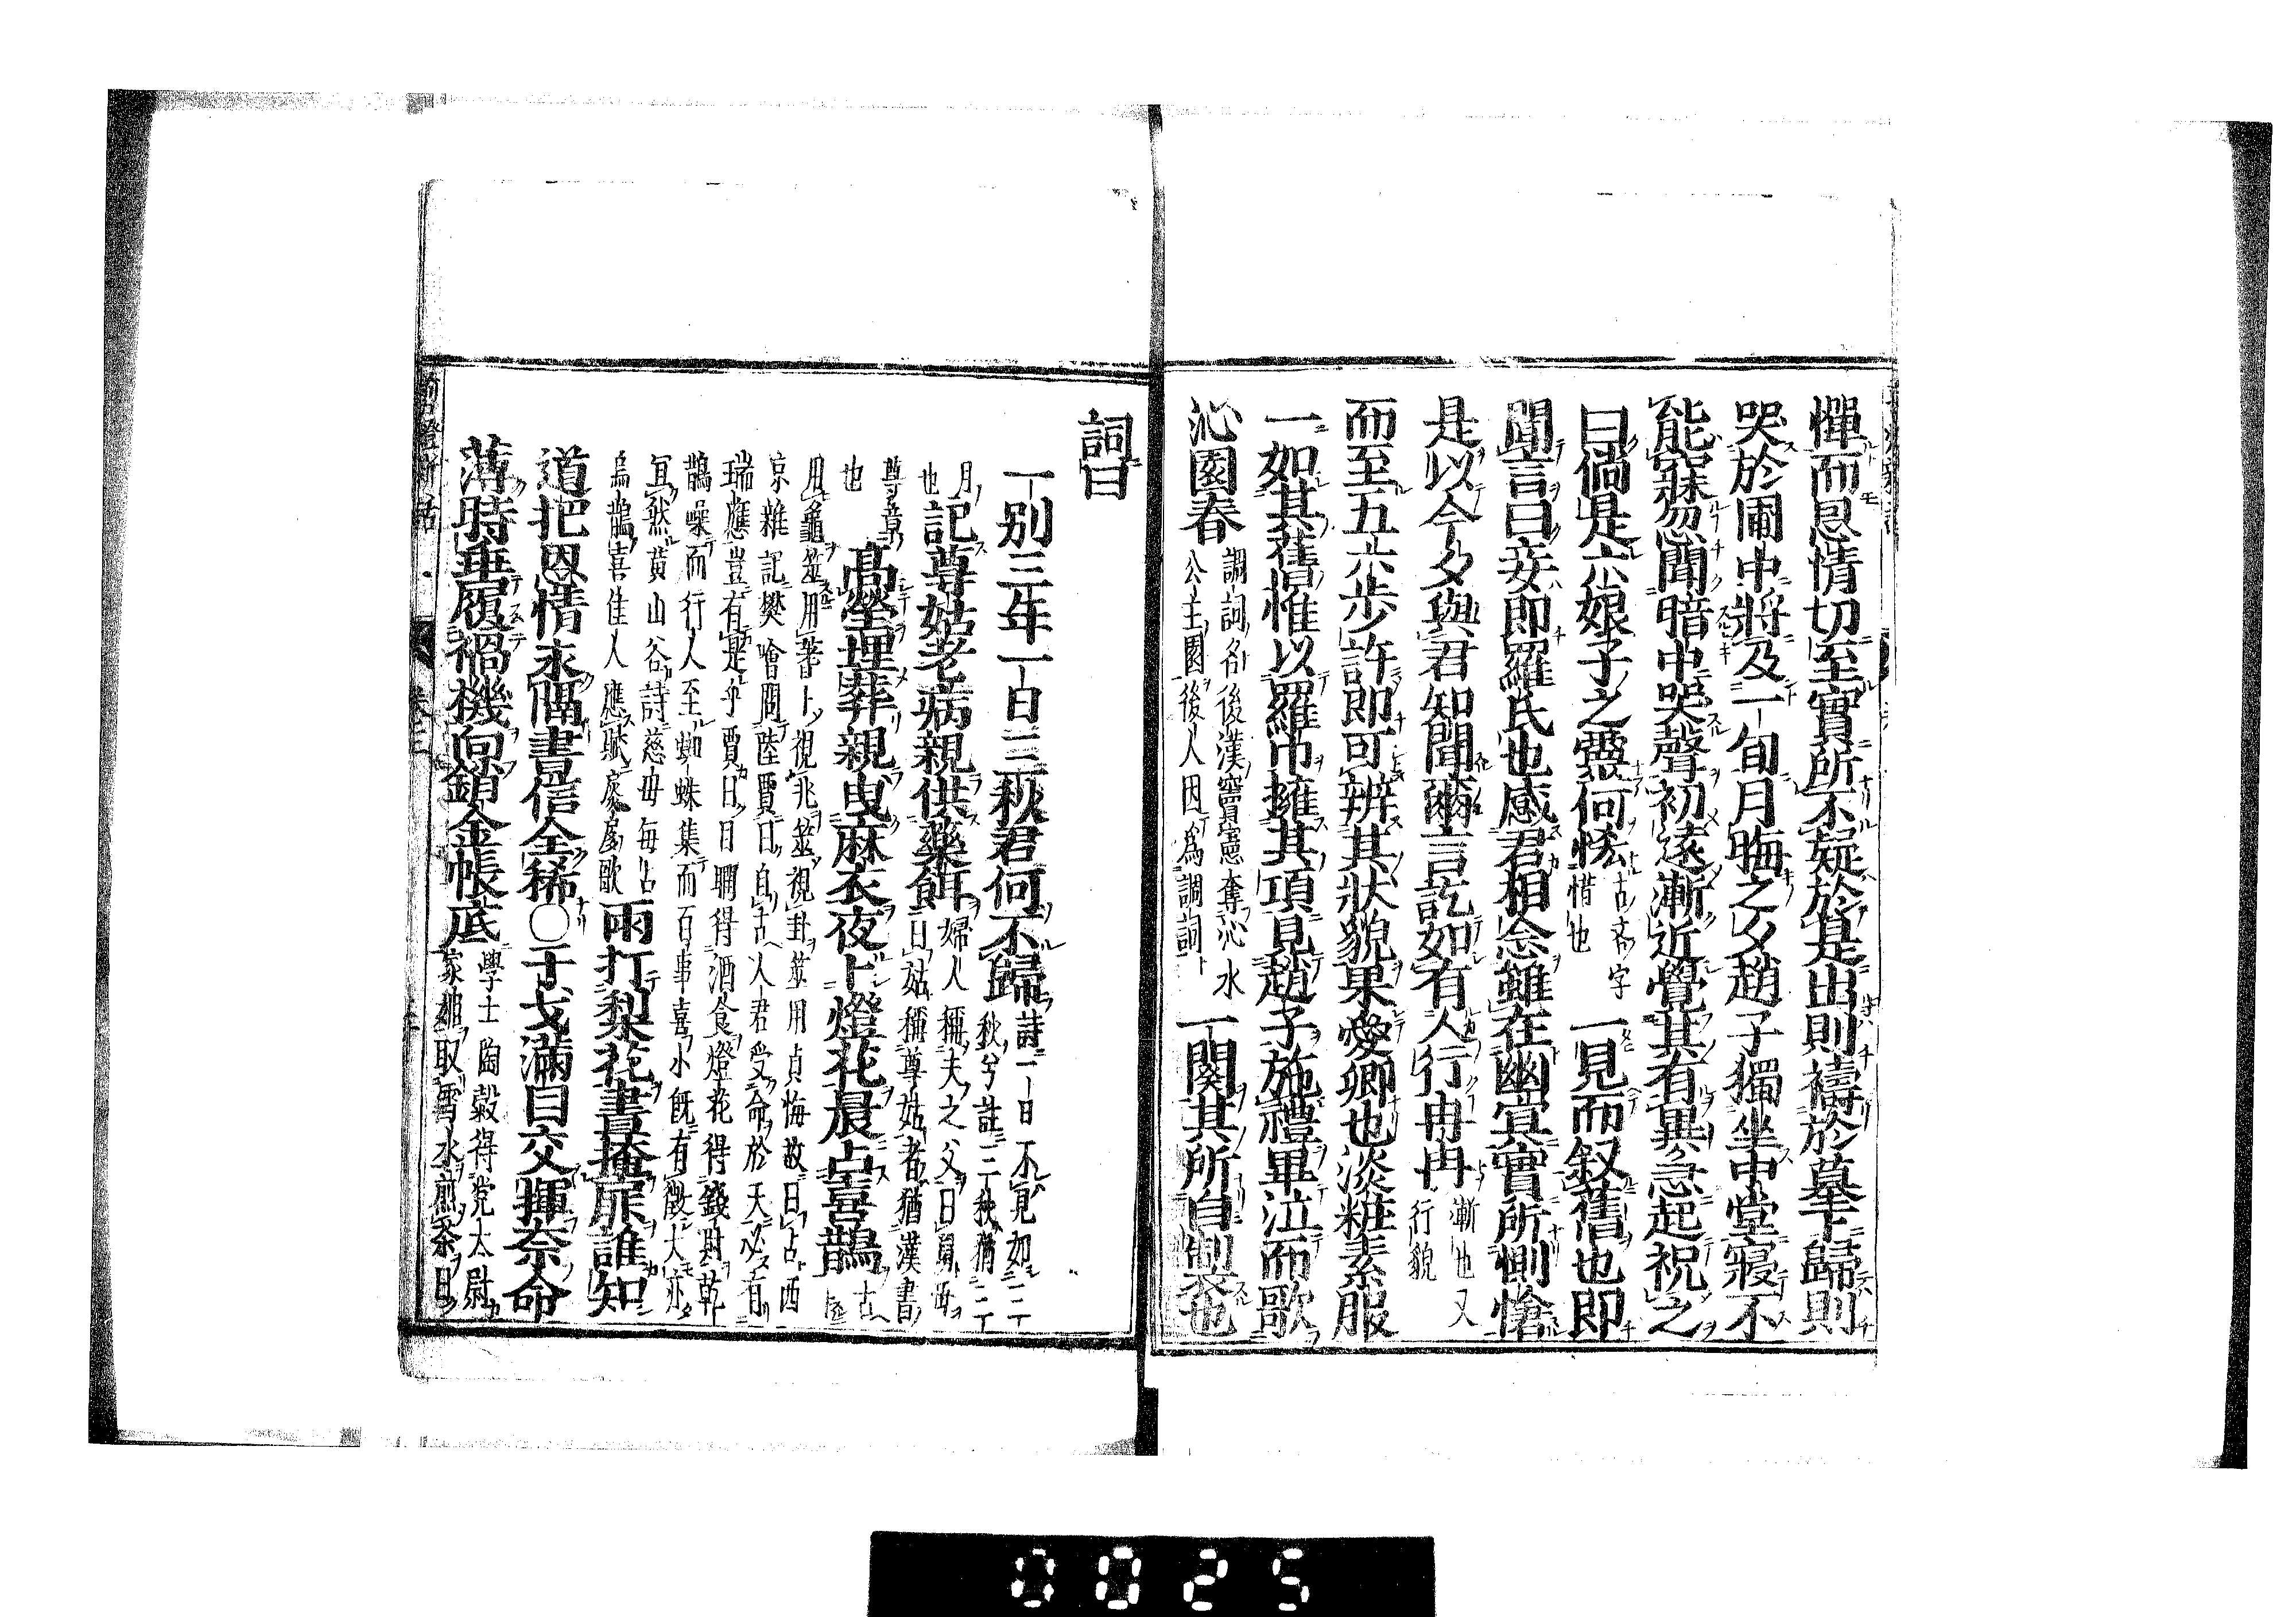 憚而恩情切至實所不疑於是出則禱於墓下歸則
哭於圃中將及一旬月晦之夕趙子獨坐中堂寢不
能寐忽聞暗中哭聲初遠漸近覺其有異急起祝之
曰倘是六娘子之靈何恡古吝字惜也一見而叙舊也即
聞言曰妾即羅氏也感君相念雖在幽冥實所惻愴
是以今夕與君知聞爾言訖如有人行冉冉漸也又行貌
而至五六步許即可辨其狀貌果愛卿也淡粧素服
一如其舊惟以羅巾擁其項見趙子施禮畢泣而歌
沁園春調詞名後漢竇憲奪沁水公主園後人因爲調詞一闋其所自製也
詞曰
一别三年一日三秋君何不歸詩一日不見如三秋兮註三秋猶三
月也記尊姑老病親供藥餌婦人稱夫之父曰舅母曰姑稱尊姑者猶漢書
尊章也高塋埋葬親曳麻衣夜卜燈花晨占喜鵲古
用龜筮用蓍卜視兆筮視卦筮用貞悔故曰占西
京雜記樊噲問陸賈曰自古人君受命於天必有
瑞應豈有是乎賈曰目瞤得酒食燈花得錢財乾
鵲噪而行人至蜘蛛集而百事喜小旣有徵大亦
宜然黃山谷詩慈母每占
烏鵲喜佳人應賦扊扅歌雨打梨花晝掩扉誰知
道把恩情永隔書信全稀〇干戈滿目交揮奈命
薄時乖履禍機向銷金帳底學士陶穀得党太尉家姬取雪水煎茶曰
剪燈新話
卷三
0025